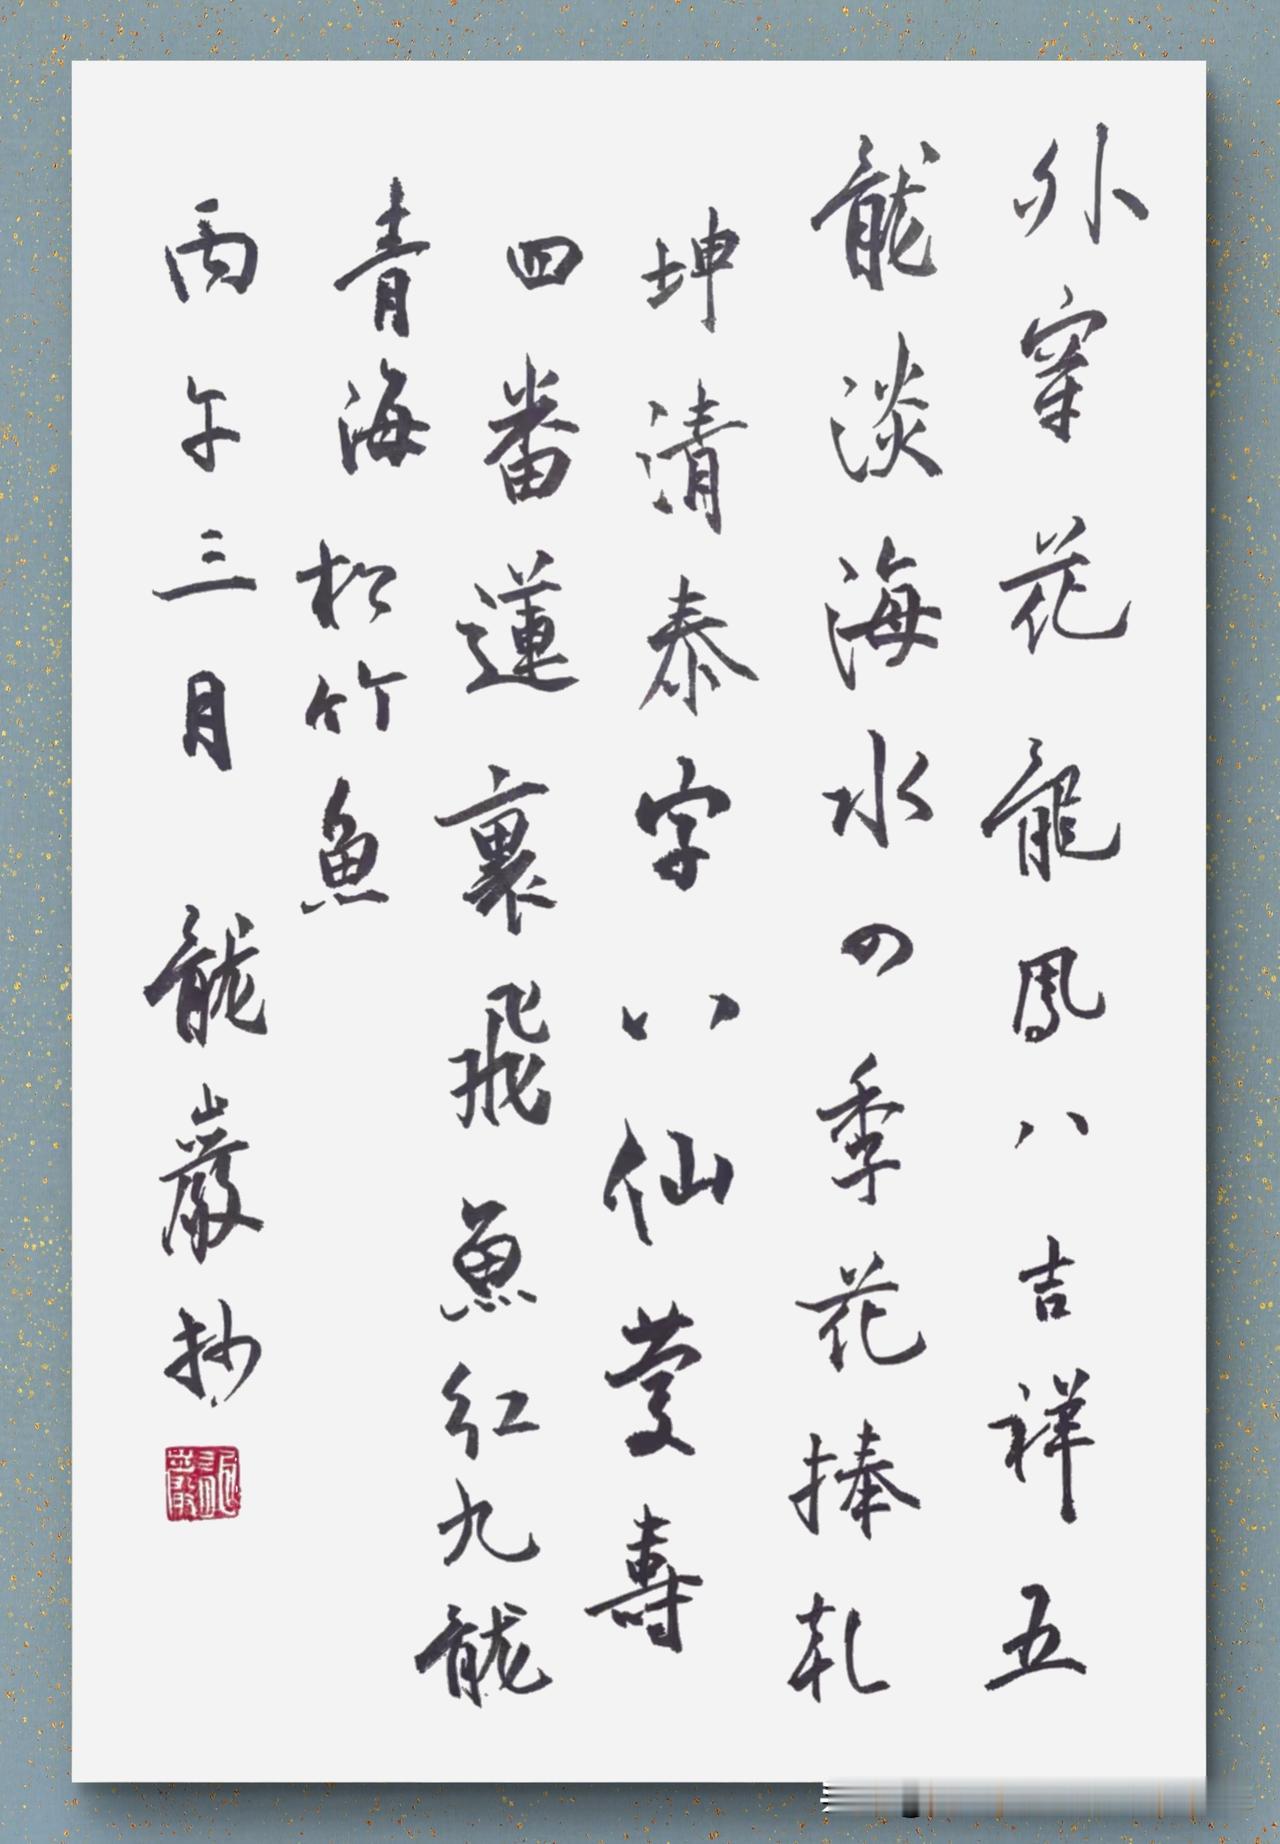 外穿花龍鳳八吉祥五
龍淡海水四季花捧乾
坤清泰字八仙慶壽
四番蓮裏飛魚紅九龍
青海松竹魚
丙午三月 龍巖抄